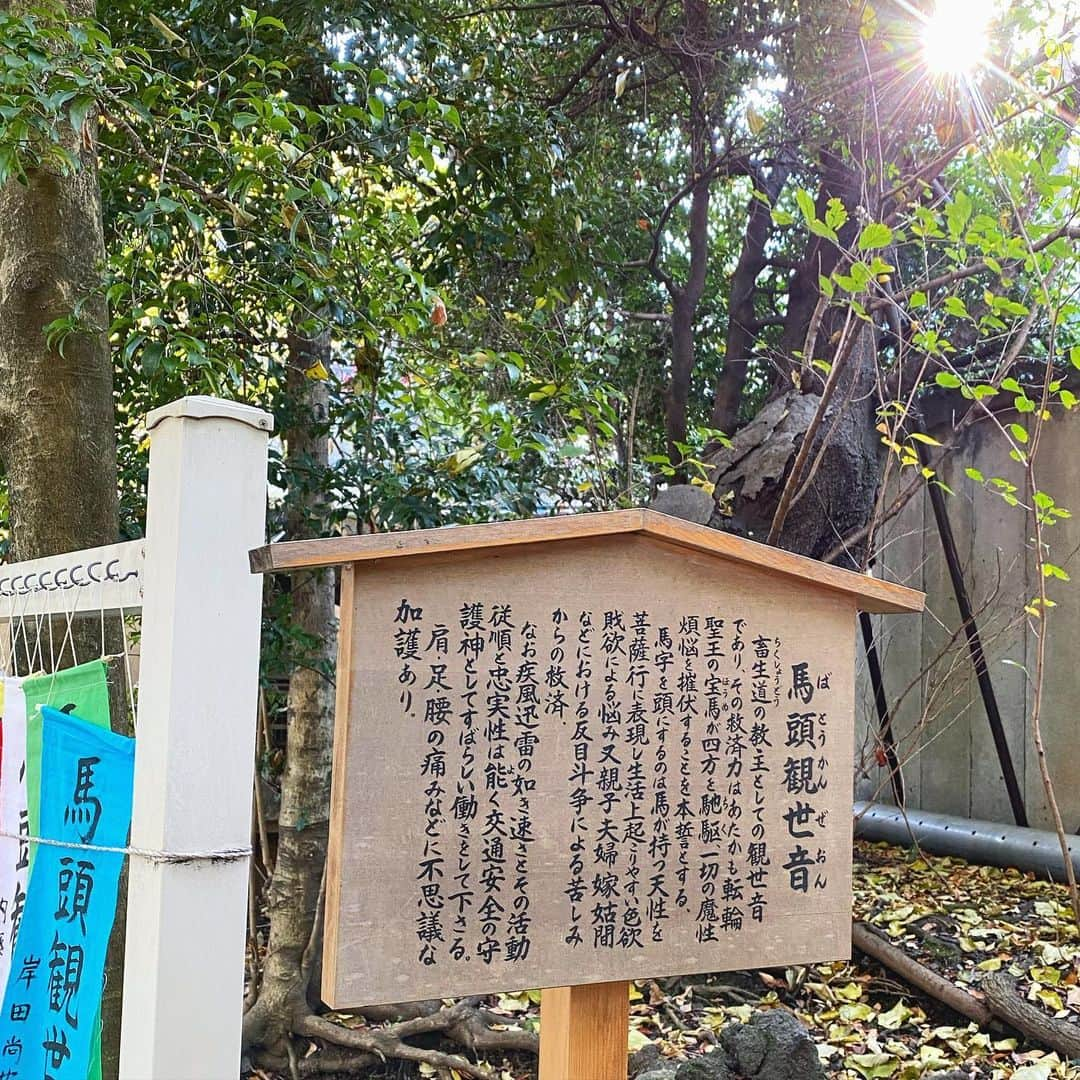 馬頭観世音
ば とうかん ぜ おん
畜生道の救王としての観世音
ちくしょうどう
であり、その救済力はあたかも転輪
聖王の宝馬が四方を馳駆、一切の魔性
ほうめ ちく
煩悩を摧伏することを本誓とする。
馬字を頭にするのは馬が持つ天性を
菩薩行に表現し生活上起こりやすい色欲
賎欲による悩み又親子夫婦嫁姑間
などにおける反目斗争による苦しみ
からの救済。
なお疾風迅雷の如き速さとその活動
従順と忠実性は能く交通安全の守
よ
護神としてすばらしい働きをして下さる。
肩、足、腰の痛みなどに不思議な
加護あり。
馬頭観世
岸田尚